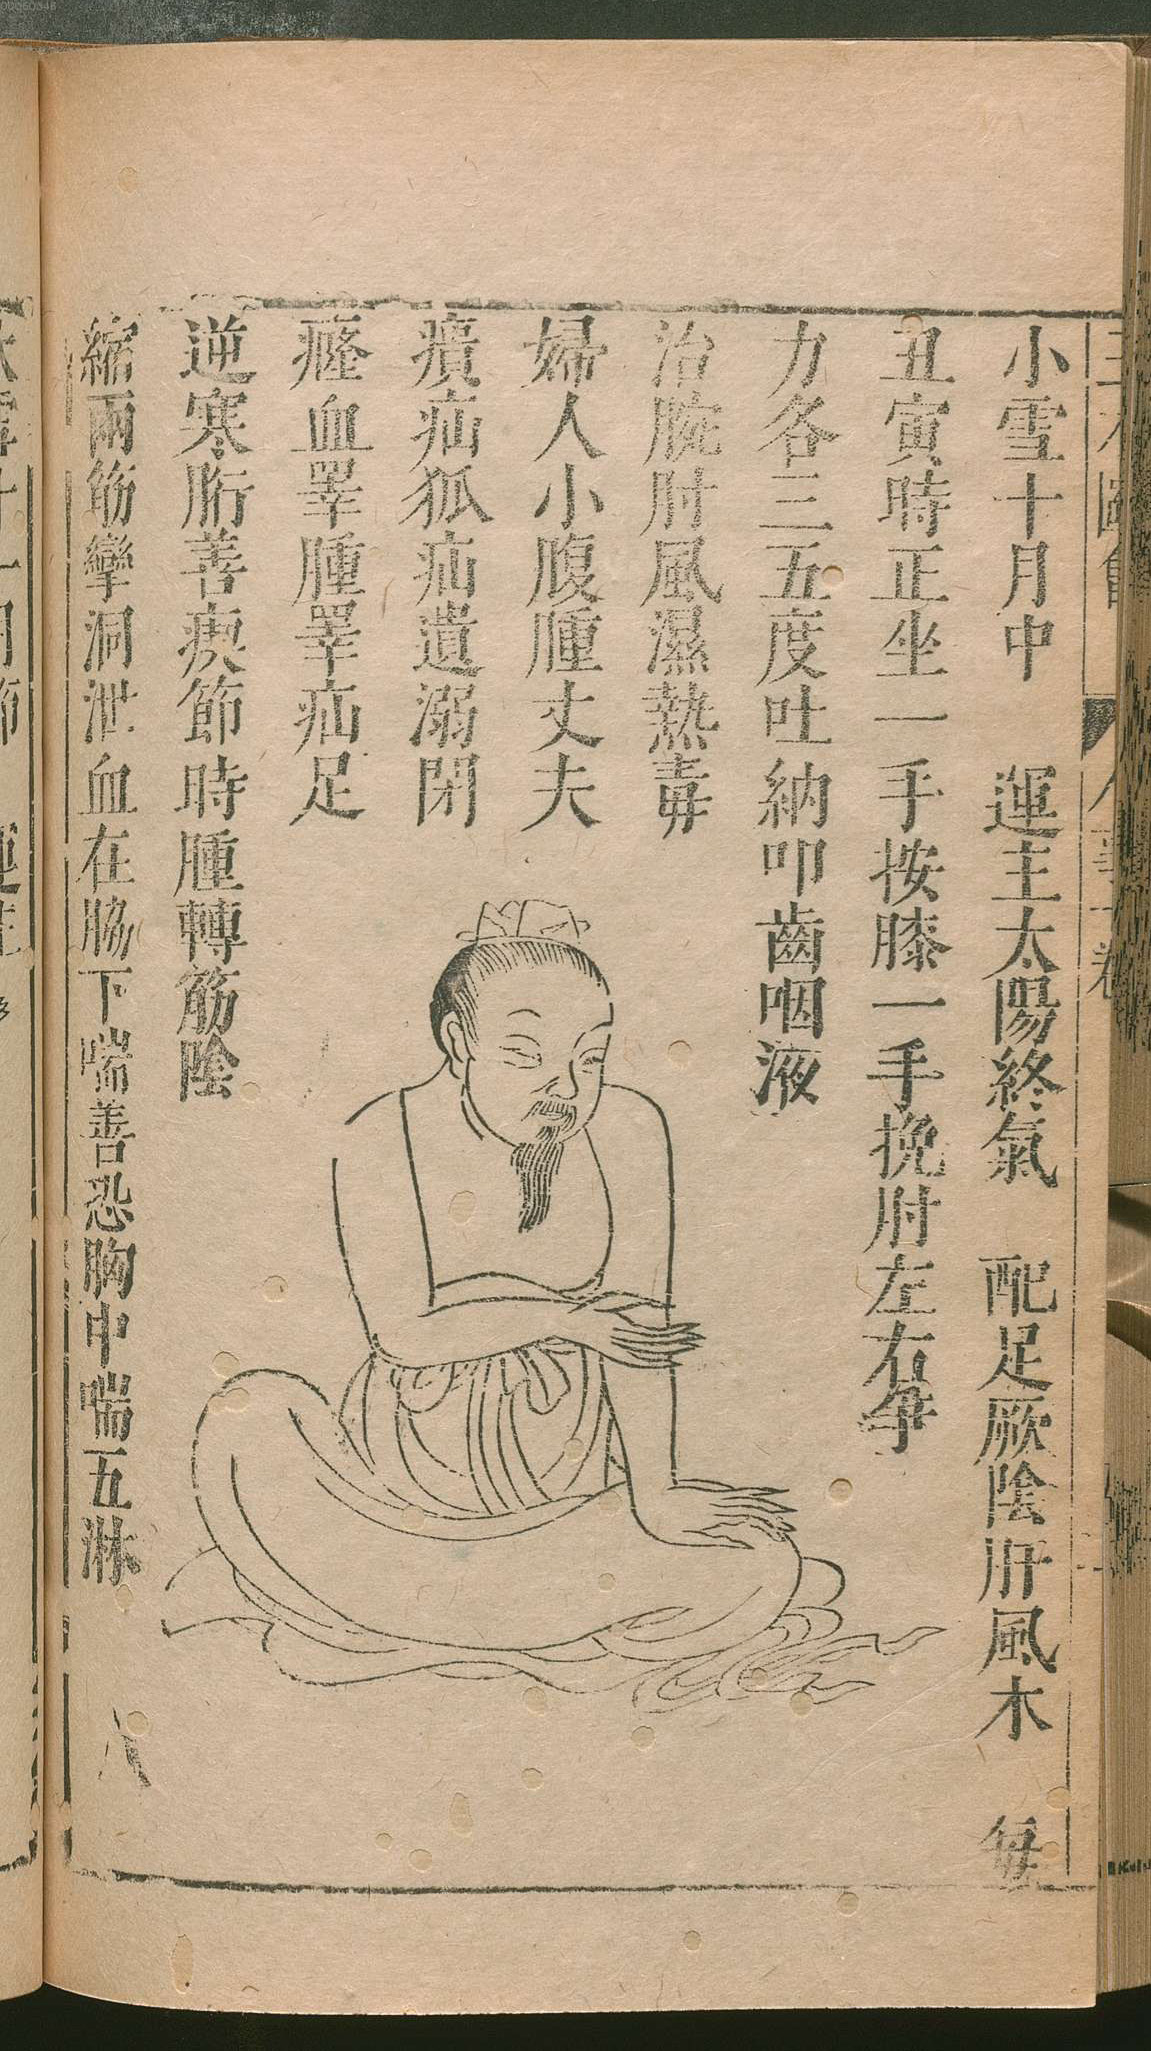 小雪十月中　運主太陽終氣　配足厥陰肝風木　每
丑寅時正坐一手按膝一手挽肘左右爭
力各三五度吐納叩齒咽液
治腕肘風濕熱毒
婦人小腹腫丈夫
㿉疝狐疝遺溺閉
癃血睪腫睪疝足
逆寒胻善瘈節時腫轉筋陰
縮兩筋攣洞泄血在脇下喘善恐胸中喘五淋